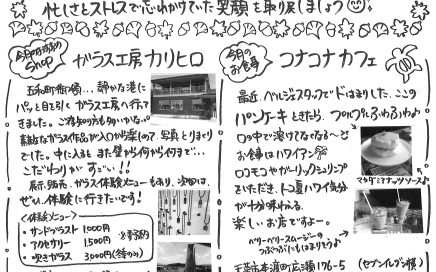 忙しさとストレスで忘れかけていた笑顔を取り戻しましょう
今月の shop
ガラス工房カリヒロ
五和町御領…静かな港に
パッと目を引くガラス工房へ行って
きました。ご存知の方も多いかな。
素敵なガラス作品が入口から楽しめて、写真とりまくり
でした。中に入るとまた壁から何から何まで…
こだわりがすごい!!
展示、販売、ガラス体験メニューもあり、次回は、
ぜひ体験に行きたいです!
<体験メニュー>
・サンドブラスト 1,000円
・アクセサリー 1,500円
・吹きガラス 3,000円
※要予約
今月のお食事
コナコナカフェ
最近、ベルジュスタッフでドはまりした、ここの
パンケーキときたら、フワフワふわふわ
口の中で溶けてなくなる〜
お食事はハワイアン
ロコモコやガーリックシュリンプ
をいただき、トコ夏ハワイ気分
が十分味わえる、
楽しいお店ですよー。
マカダミアナッツソース
ベリーベリースムージーの
つぶつぶにもはまりそう♪
天草市本渡町広瀬176-5 (セブンイレブン横)